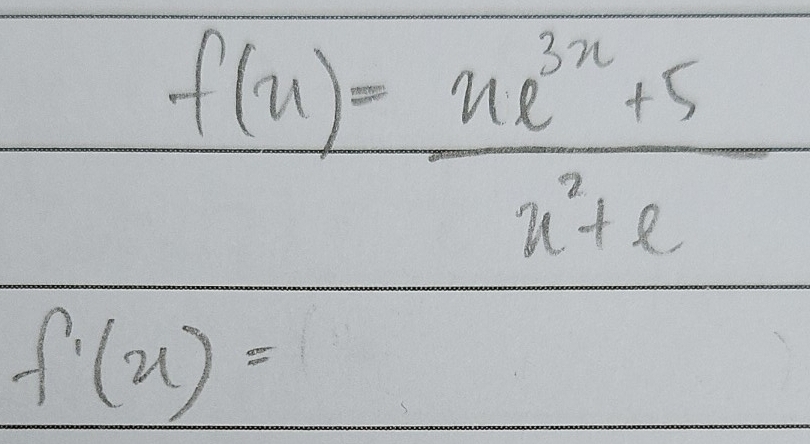 f(x) = xe^{3x} + 5
x² + e
f'(x) =